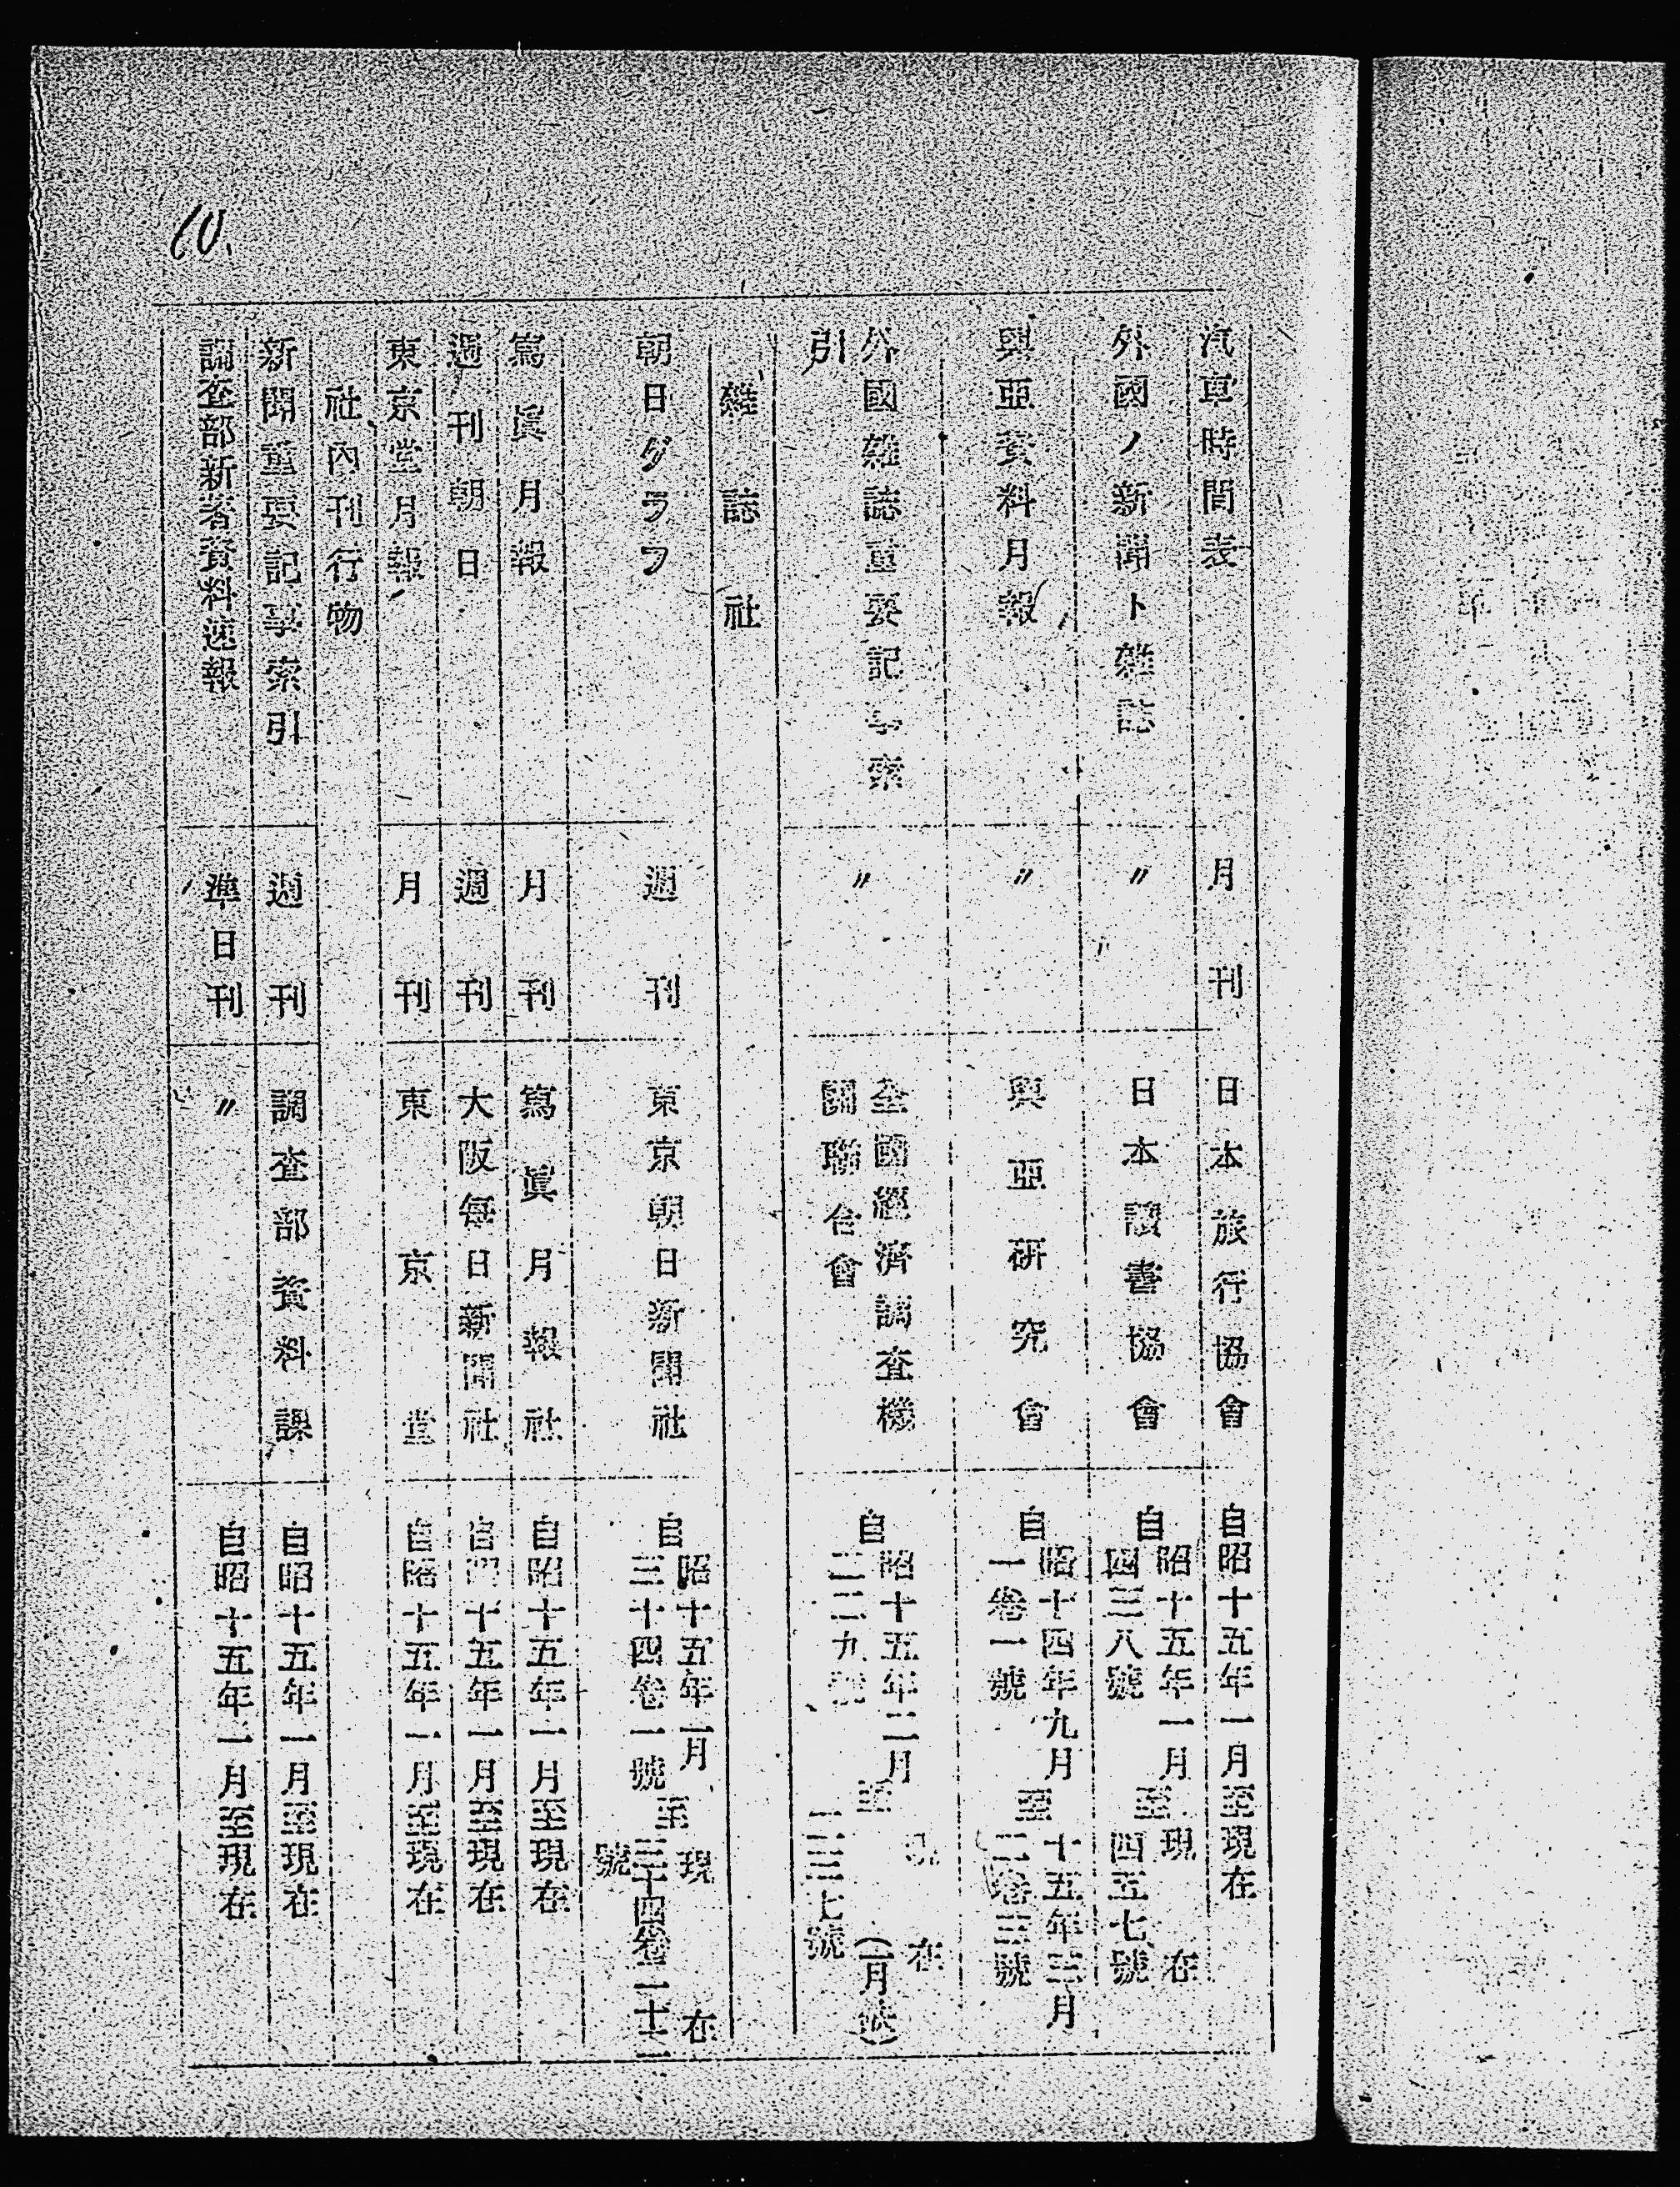 10.
汽車時間表 月刊 日本旅行協會 自昭十五年一月至現在
外國ノ新聞ト雜誌 〃 日本讀書協會 自昭十五年一月四三八號至現在四五七號
興亞資料月報 〃 興亞研究會 自昭十四年九月一卷一號至十五年三月二卷三號
外國雜誌重要記事索引 〃 全國經濟調查機關聯合會 自昭十五年二月二二九號至現在二三七號(一月缺)
雜誌社
朝日グラフ 週刊 東京朝日新聞社 自昭十五年一月三十四卷一號至現在三十四卷二十二號
寫眞月報 月刊 寫眞月報社 自昭十五年一月至現在
週刊朝日 週刊 大阪每日新聞社 自昭十五年一月至現在
東京堂月報 月刊 東京堂 自昭十五年一月至現在
社內刊行物
新聞重要記事索引 週刊 調查部資料課 自昭十五年一月至現在
調查部新著資料速報 準日刊 〃 自昭十五年一月至現在